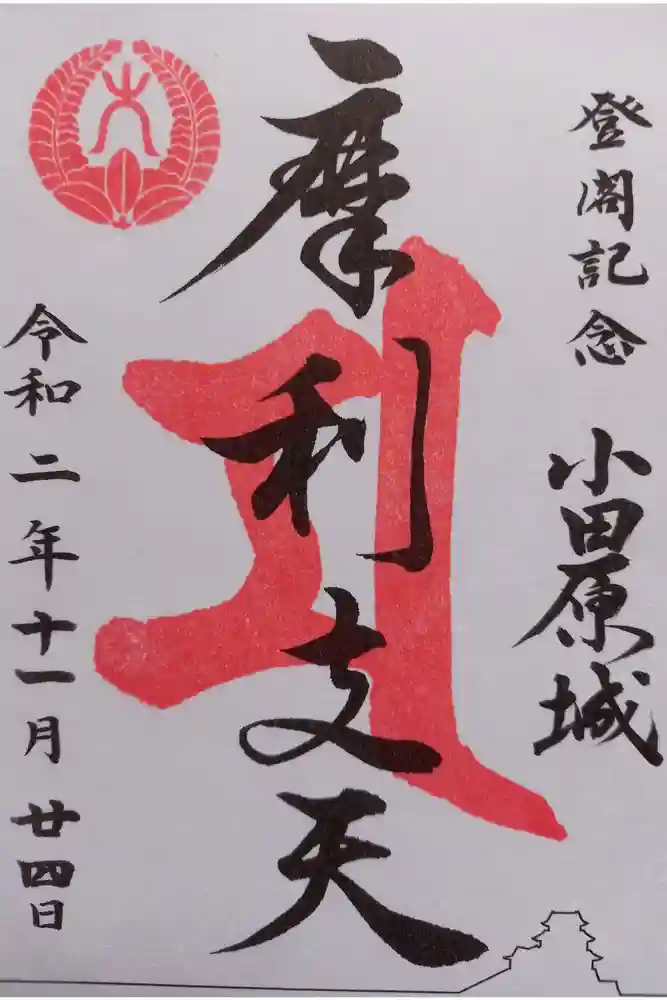 登閣記念 小田原城
摩利支天
令和二年十一月廿四日